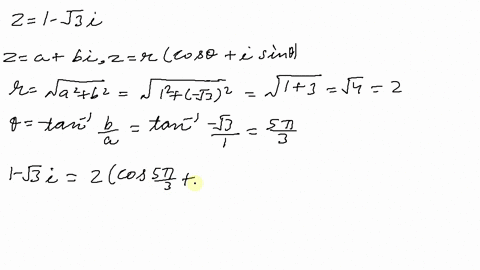 z = 1-√3 i
z = a + bi, z = r (cosθ + i sinθ)
r = √a²+b² = √1²+(-√3)² = √1+3 = √4 = 2
θ = tan⁻¹ b/a = tan⁻¹ -√3/1 = 5π/3
1-√3 i = 2 (cos 5π/3 +